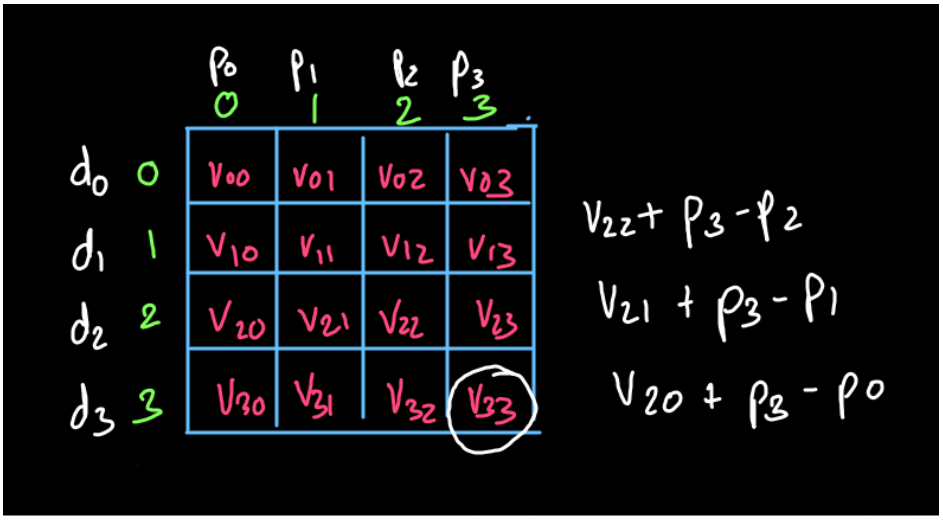 p0 p1 p2 p3
0 1 2 3
d0 0 V00 V01 V02 V03
d1 1 V10 V11 V12 V13
d2 2 V20 V21 V22 V23
d3 3 V30 V31 V32 V33
V22 + p3 - p2
V21 + p3 - p1
V20 + p3 - p0